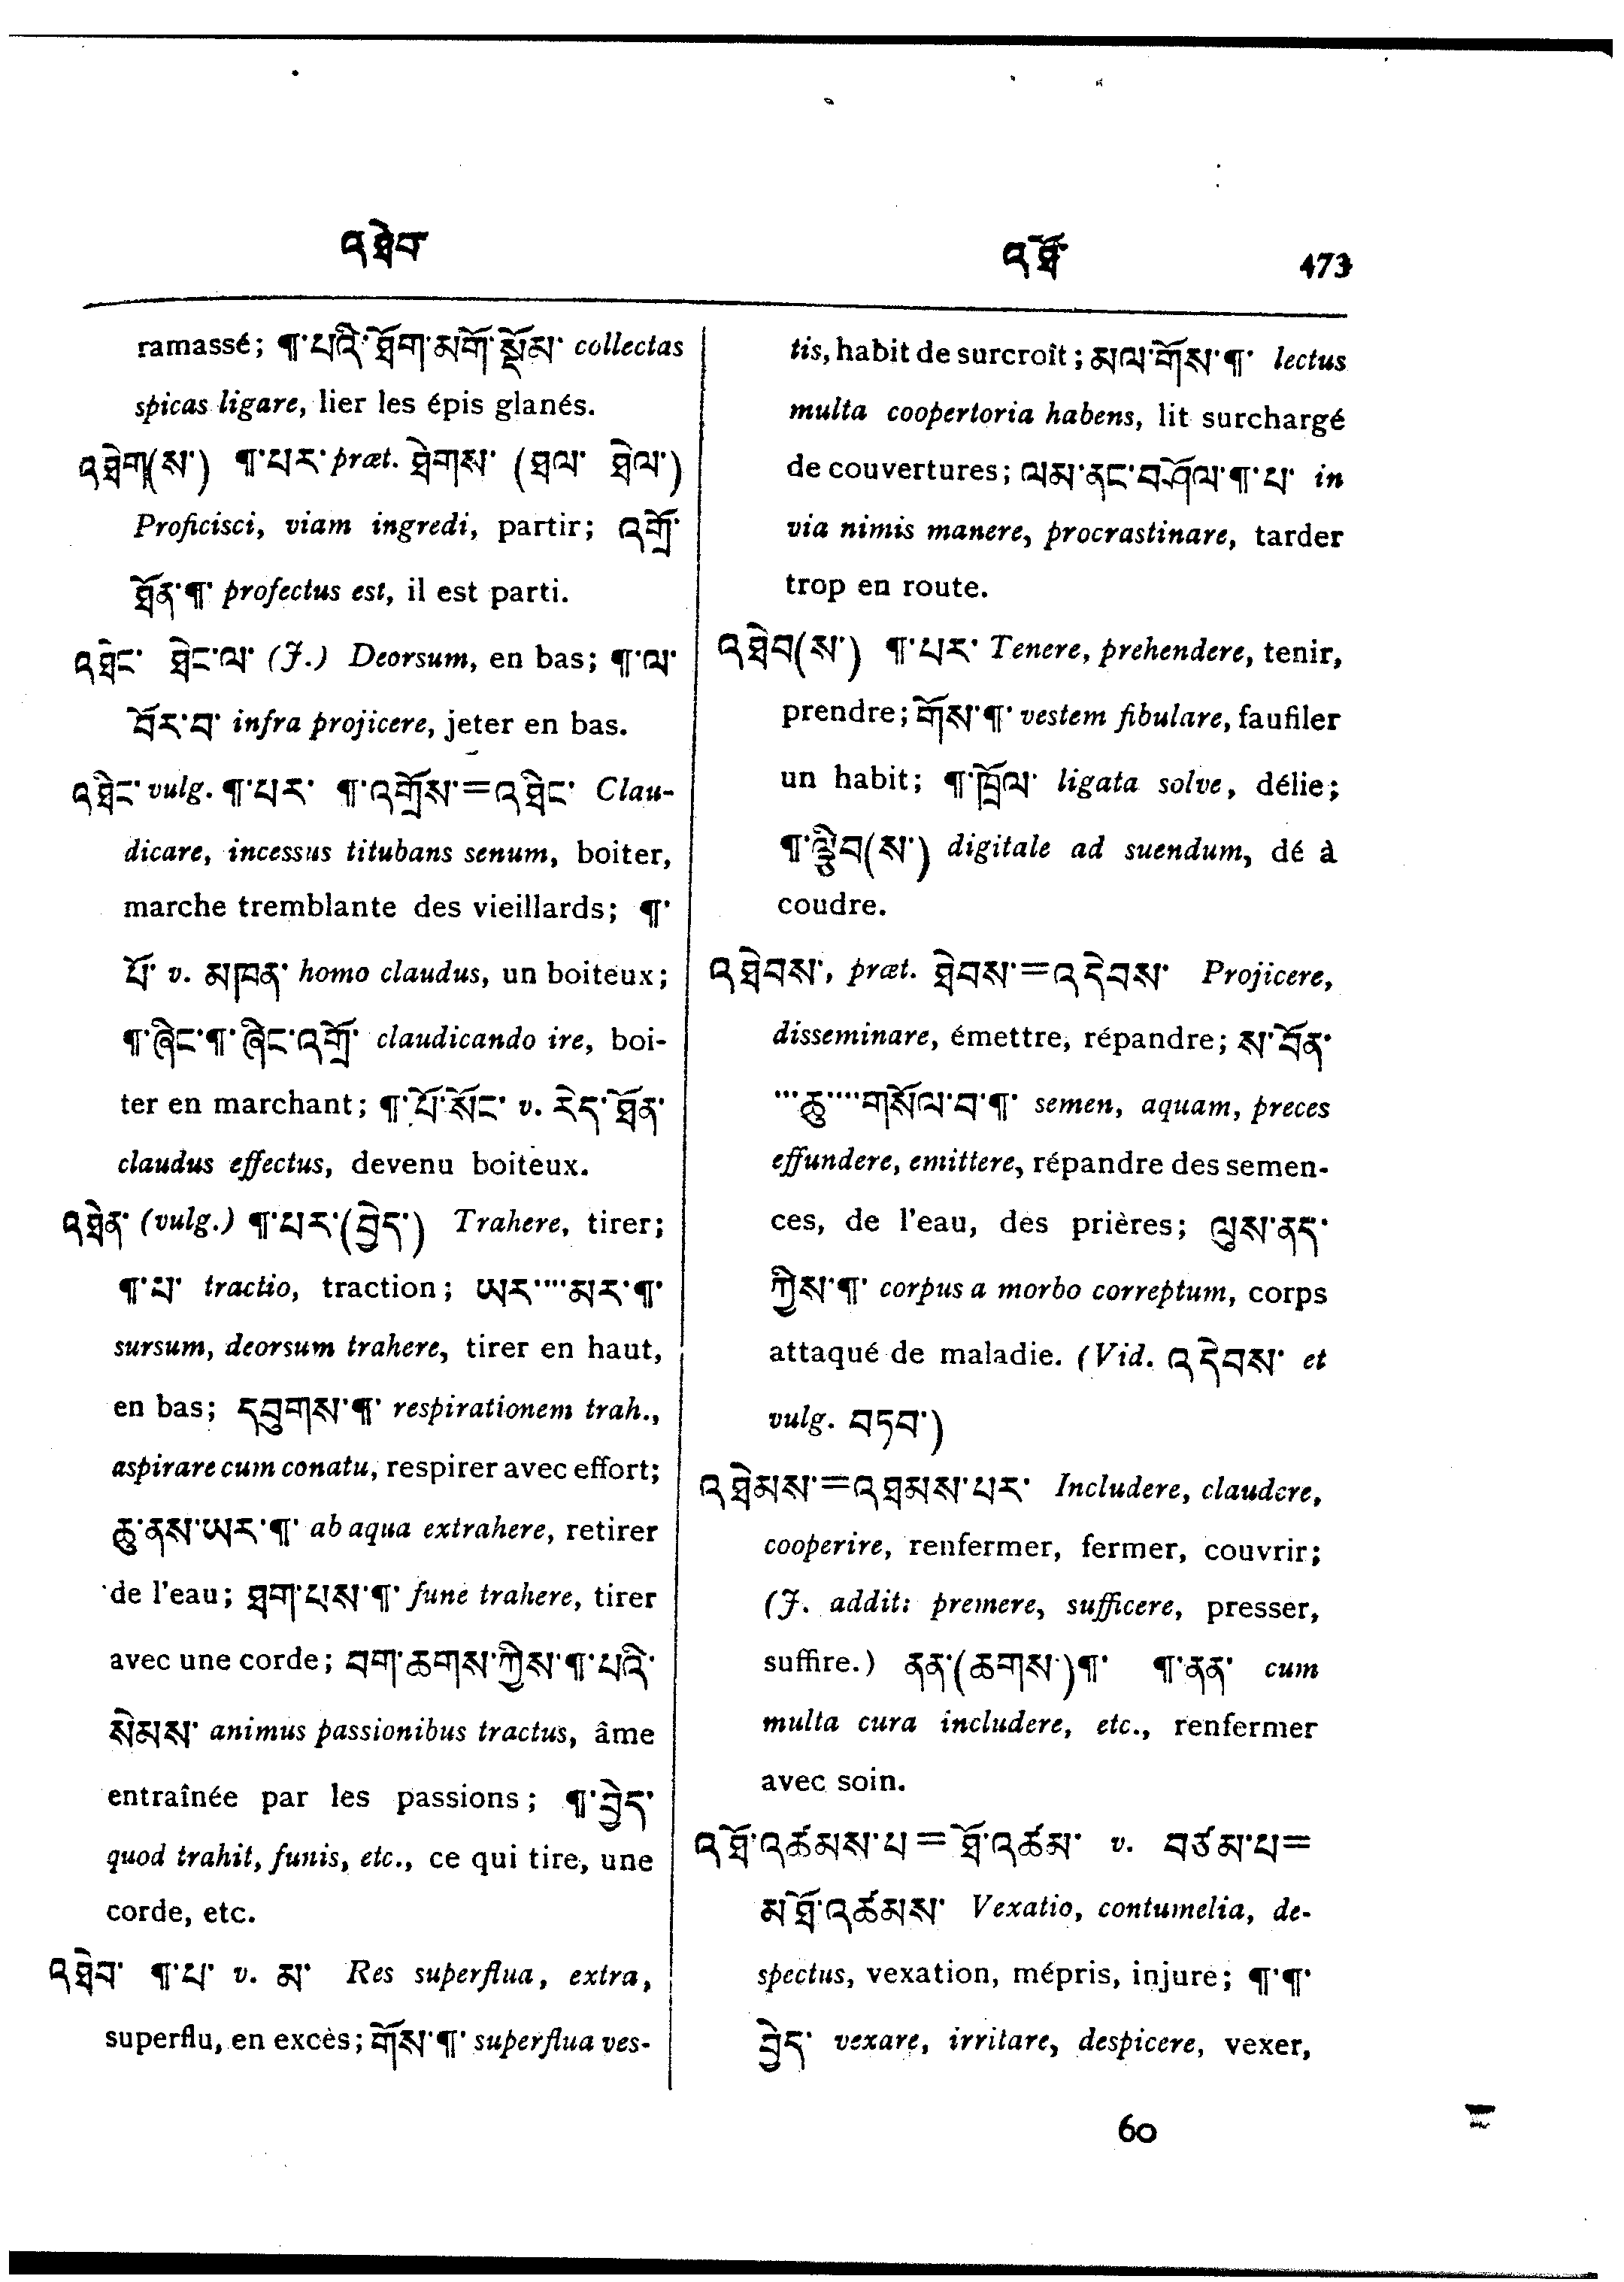 འཐེབ
འཐོ་
473
ramassé; ¶་པའི་ཐོག་མགོ་སྡོམ་ collectas
spicas ligare, lier les épis glanés.
འཐེག(ས་) ¶་པར་ præt. ཐེགས་ (ཐལ་ ཐེལ་)
Proficisci, viam ingredi, partir; འགྲོ་
ཐོན་¶་ profectus est, il est parti.
འཐེང་ ཐེང་ལ་ (J.) Deorsum, en bas; ¶་ལ་
བོར་བ་ infra projicere, jeter en bas.
འཐེང་ vulg. ¶་པར་ ¶་འགྲོས་=འཐེང་ Clau-
dicare, incessus titubans senum, boiter,
marche tremblante des vieillards; ¶་
པོ་ v. མཁན་ homo claudus, un boiteux;
¶་ཞིང་¶་ཞིང་འགྲོ་ claudicando ire, boi-
ter en marchant; ¶་པོ་སོང་ v. རེད་ཐོན་
claudus effectus, devenu boiteux.
འཐེན་ (vulg.) ¶་པར་(བྱེད་) Trahere, tirer;
¶་པ་ tractio, traction; ཡར་····མར་¶་
sursum, deorsum trahere, tirer en haut,
en bas; དབུགས་¶་ respirationem trah.,
aspirare cum conatu, respirer avec effort;
ཆུ་ནས་ཡར་¶་ ab aqua extrahere, retirer
de l'eau; ཐག་པས་¶་ fune trahere, tirer
avec une corde; བག་ཆགས་ཀྱིས་¶་པའི་
སེམས་ animus passionibus tractus, âme
entraînée par les passions; ¶་བྱེད་
quod trahit, funis, etc., ce qui tire, une
corde, etc.
འཐེབ་ ¶་པ་ v. མ་ Res superflua, extra,
superflu, en excès; གོས་¶་ superflua ves-
tis, habit de surcroît; མལ་གོས་¶་ lectus
multa coopertoria habens, lit surchargé
de couvertures; ལམ་ནང་བཤོལ་¶་པ་ in
via nimis manere, procrastinare, tarder
trop en route.
འཐེབ(ས་) ¶་པར་ Tenere, prehendere, tenir,
prendre; གོས་¶་ vestem fibulare, faufiler
un habit; ¶་ཁྲོལ་ ligata solve, délie;
digitale ad suendum, dé à
coudre.
འཐེབས་, præt. ཐེབས་=འདེབས་ Projicere,
disseminare, émettre, répandre; ས་བོན་
···ཆུ་····གསོལ་བ་¶་ semen, aquam, preces
effundere, emittere, répandre des semen-
ces, de l'eau, des prières; ལུས་ནད་
ཀྱིས་¶་ corpus a morbo correptum, corps
attaqué de maladie. (Vid. འདེབས་ et
vulg. བཏབ་)
འཐེམས་=འཐམས་པར་ Includere, claudere,
cooperire, renfermer, fermer, couvrir;
(J. addit: premere, sufficere, presser,
suffire.) ནན་(ཆགས་)¶་ ¶་ནན་ cum
multa cura includere, etc., renfermer
avec soin.
འཐོ་འཚམས་པ=ཐོ་འཚམ་ v. བཙམ་པ=
མཐོ་འཚམས་ Vexatio, contumelia, de-
spectus, vexation, mépris, injure; ¶་¶་
བྱེད་ vexare, irritare, despicere, vexer,
60